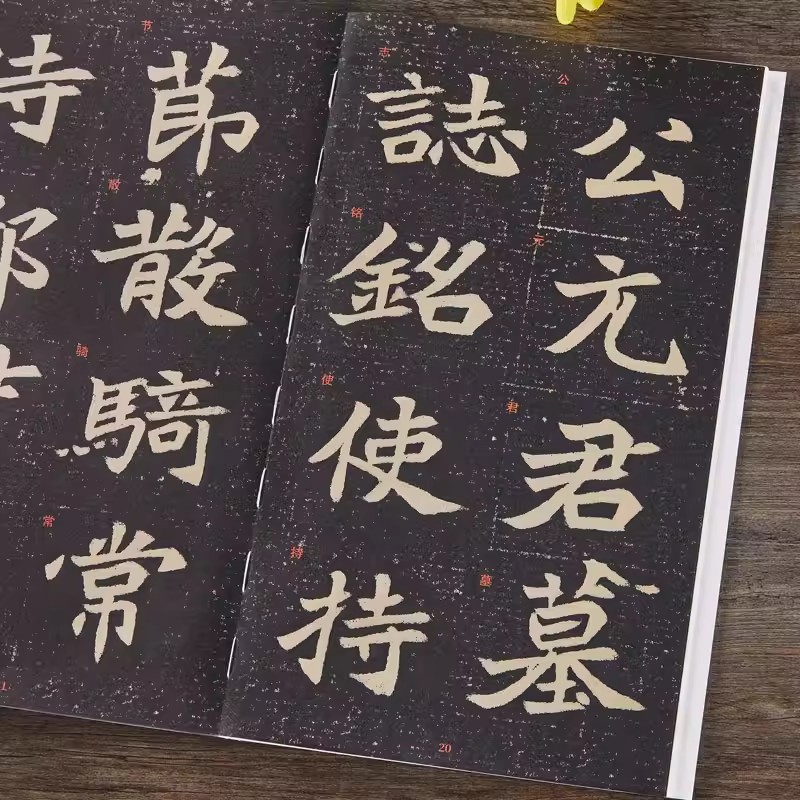 公元君墓
公元君墓
志铭使持
誌銘使持
节散骑常
節散騎常
20